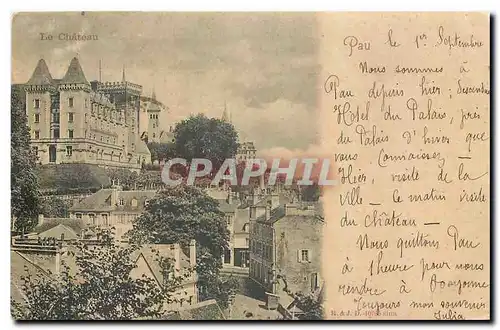 Le Château
Pau le 1er Septembre
Nous sommes à
Pau depuis hier ; descendus
Hôtel du Palais, près
du Palais d'hiver que
vous connaissez —
Hier, visite de la
Ville — Ce matin visite
du château —
Nous quittons Pau
à 1 heure pour nous
rendre à Bayonne
Toujours mon souvenir
Julia
CPARAMA.COM
M. & J. D.